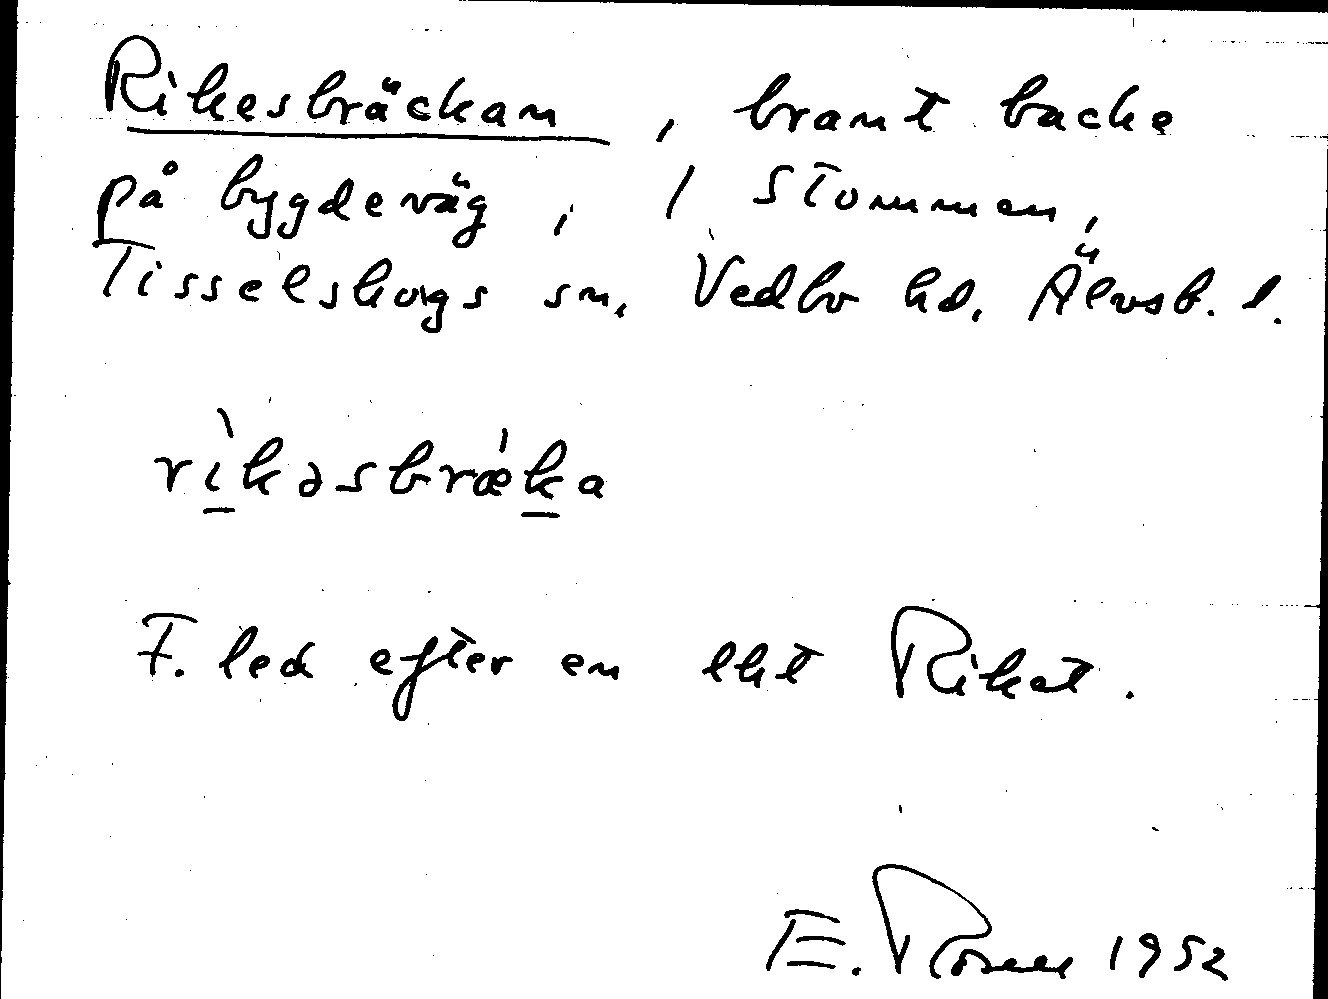 Rikesbräckan, brant backe
på bygdeväg, / Stommen,
Tisselskogs sn, Vedbo hd, Älvsb. l.
rìkəsbrǽka
F. led efter en lht Riket.
E. Rosell 1952